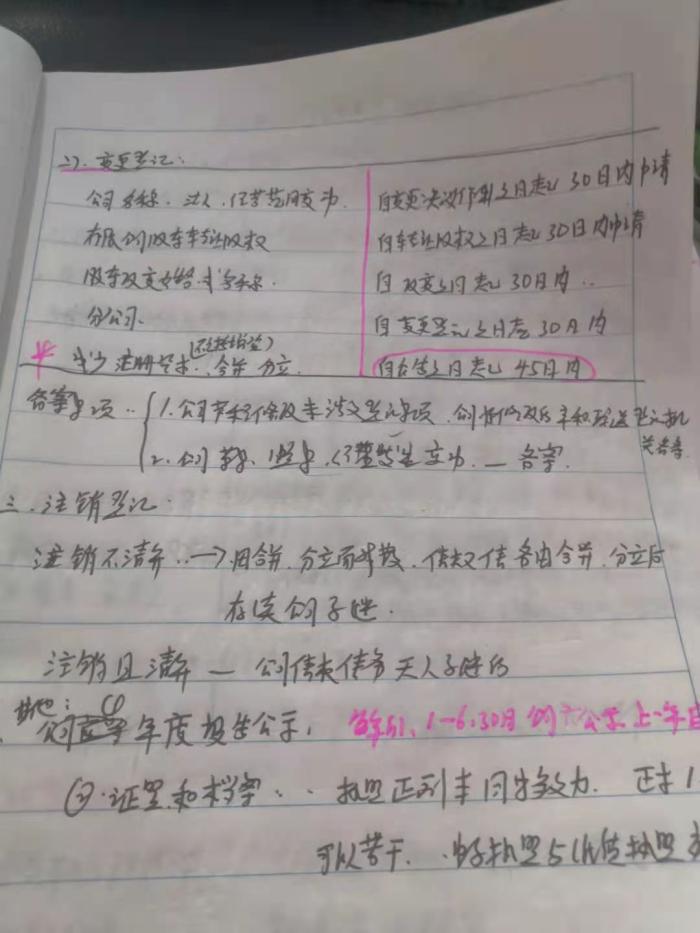 二). 变更登记:
公司名称、法人、经营范围变动 自变更决议作出之日起 30日内申请
有限公司股东转让股权 自转让股权之日起 30日内申请
股东改变姓名 自改变之日起 30日内..
分公司. 自变更登记之日起 30日内
减少注册资本、合并 分立 自公告之日起 45日内
备案事项.. 1.公司章程修改未涉及登记事项
2.公司董事、监事、经理发生变动 — 备案.
三.注销登记:
注销不清算..→因合并、分立而解散、债权债务由合并、分立后
存续公司承继.
注销且清算 — 公司债权债务无人承继的
其他:
年度报告公示, 每年1.1-6.30 公示上一年度
②.证照和档案.. 执照正副本同等效力. 正本1
可以若干. 电子执照与纸质执照